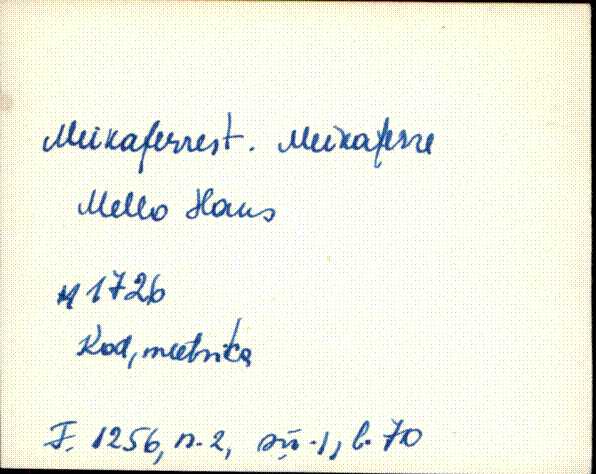 Meikaferrest. Meikaferre
Mello Hans
1726
Kod, metrika
F. 1256, n. 2, l. 70